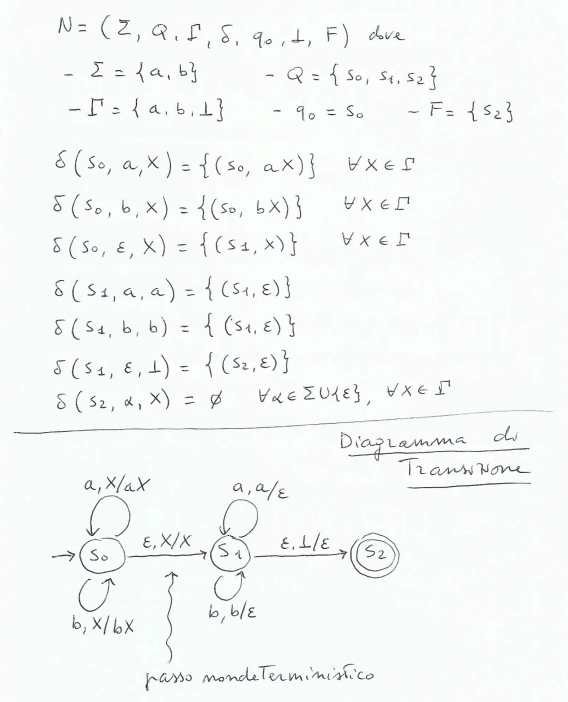 N = (Σ, Q, Γ, δ, q₀, ⊥, F) dove
- Σ = {a, b} - Q = {s₀, s₁, s₂}
- Γ = {a, b, ⊥} - q₀ = s₀ - F = {s₂}
δ(s₀, a, X) = {(s₀, aX)} ∀X ∈ Γ
δ(s₀, b, X) = {(s₀, bX)} ∀X ∈ Γ
δ(s₀, ε, X) = {(s₁, X)} ∀X ∈ Γ
δ(s₁, a, a) = {(s₁, ε)}
δ(s₁, b, b) = {(s₁, ε)}
δ(s₁, ε, ⊥) = {(s₂, ε)}
δ(s₂, α, X) = ∅ ∀α ∈ Σ∪{ε}, ∀X ∈ Γ
Diagramma di
Transizione
a, X/aX a, a/ε
s₀ ε, X/X s₁ ε, ⊥/ε s₂
b, X/bX b, b/ε
passo nondeterministico